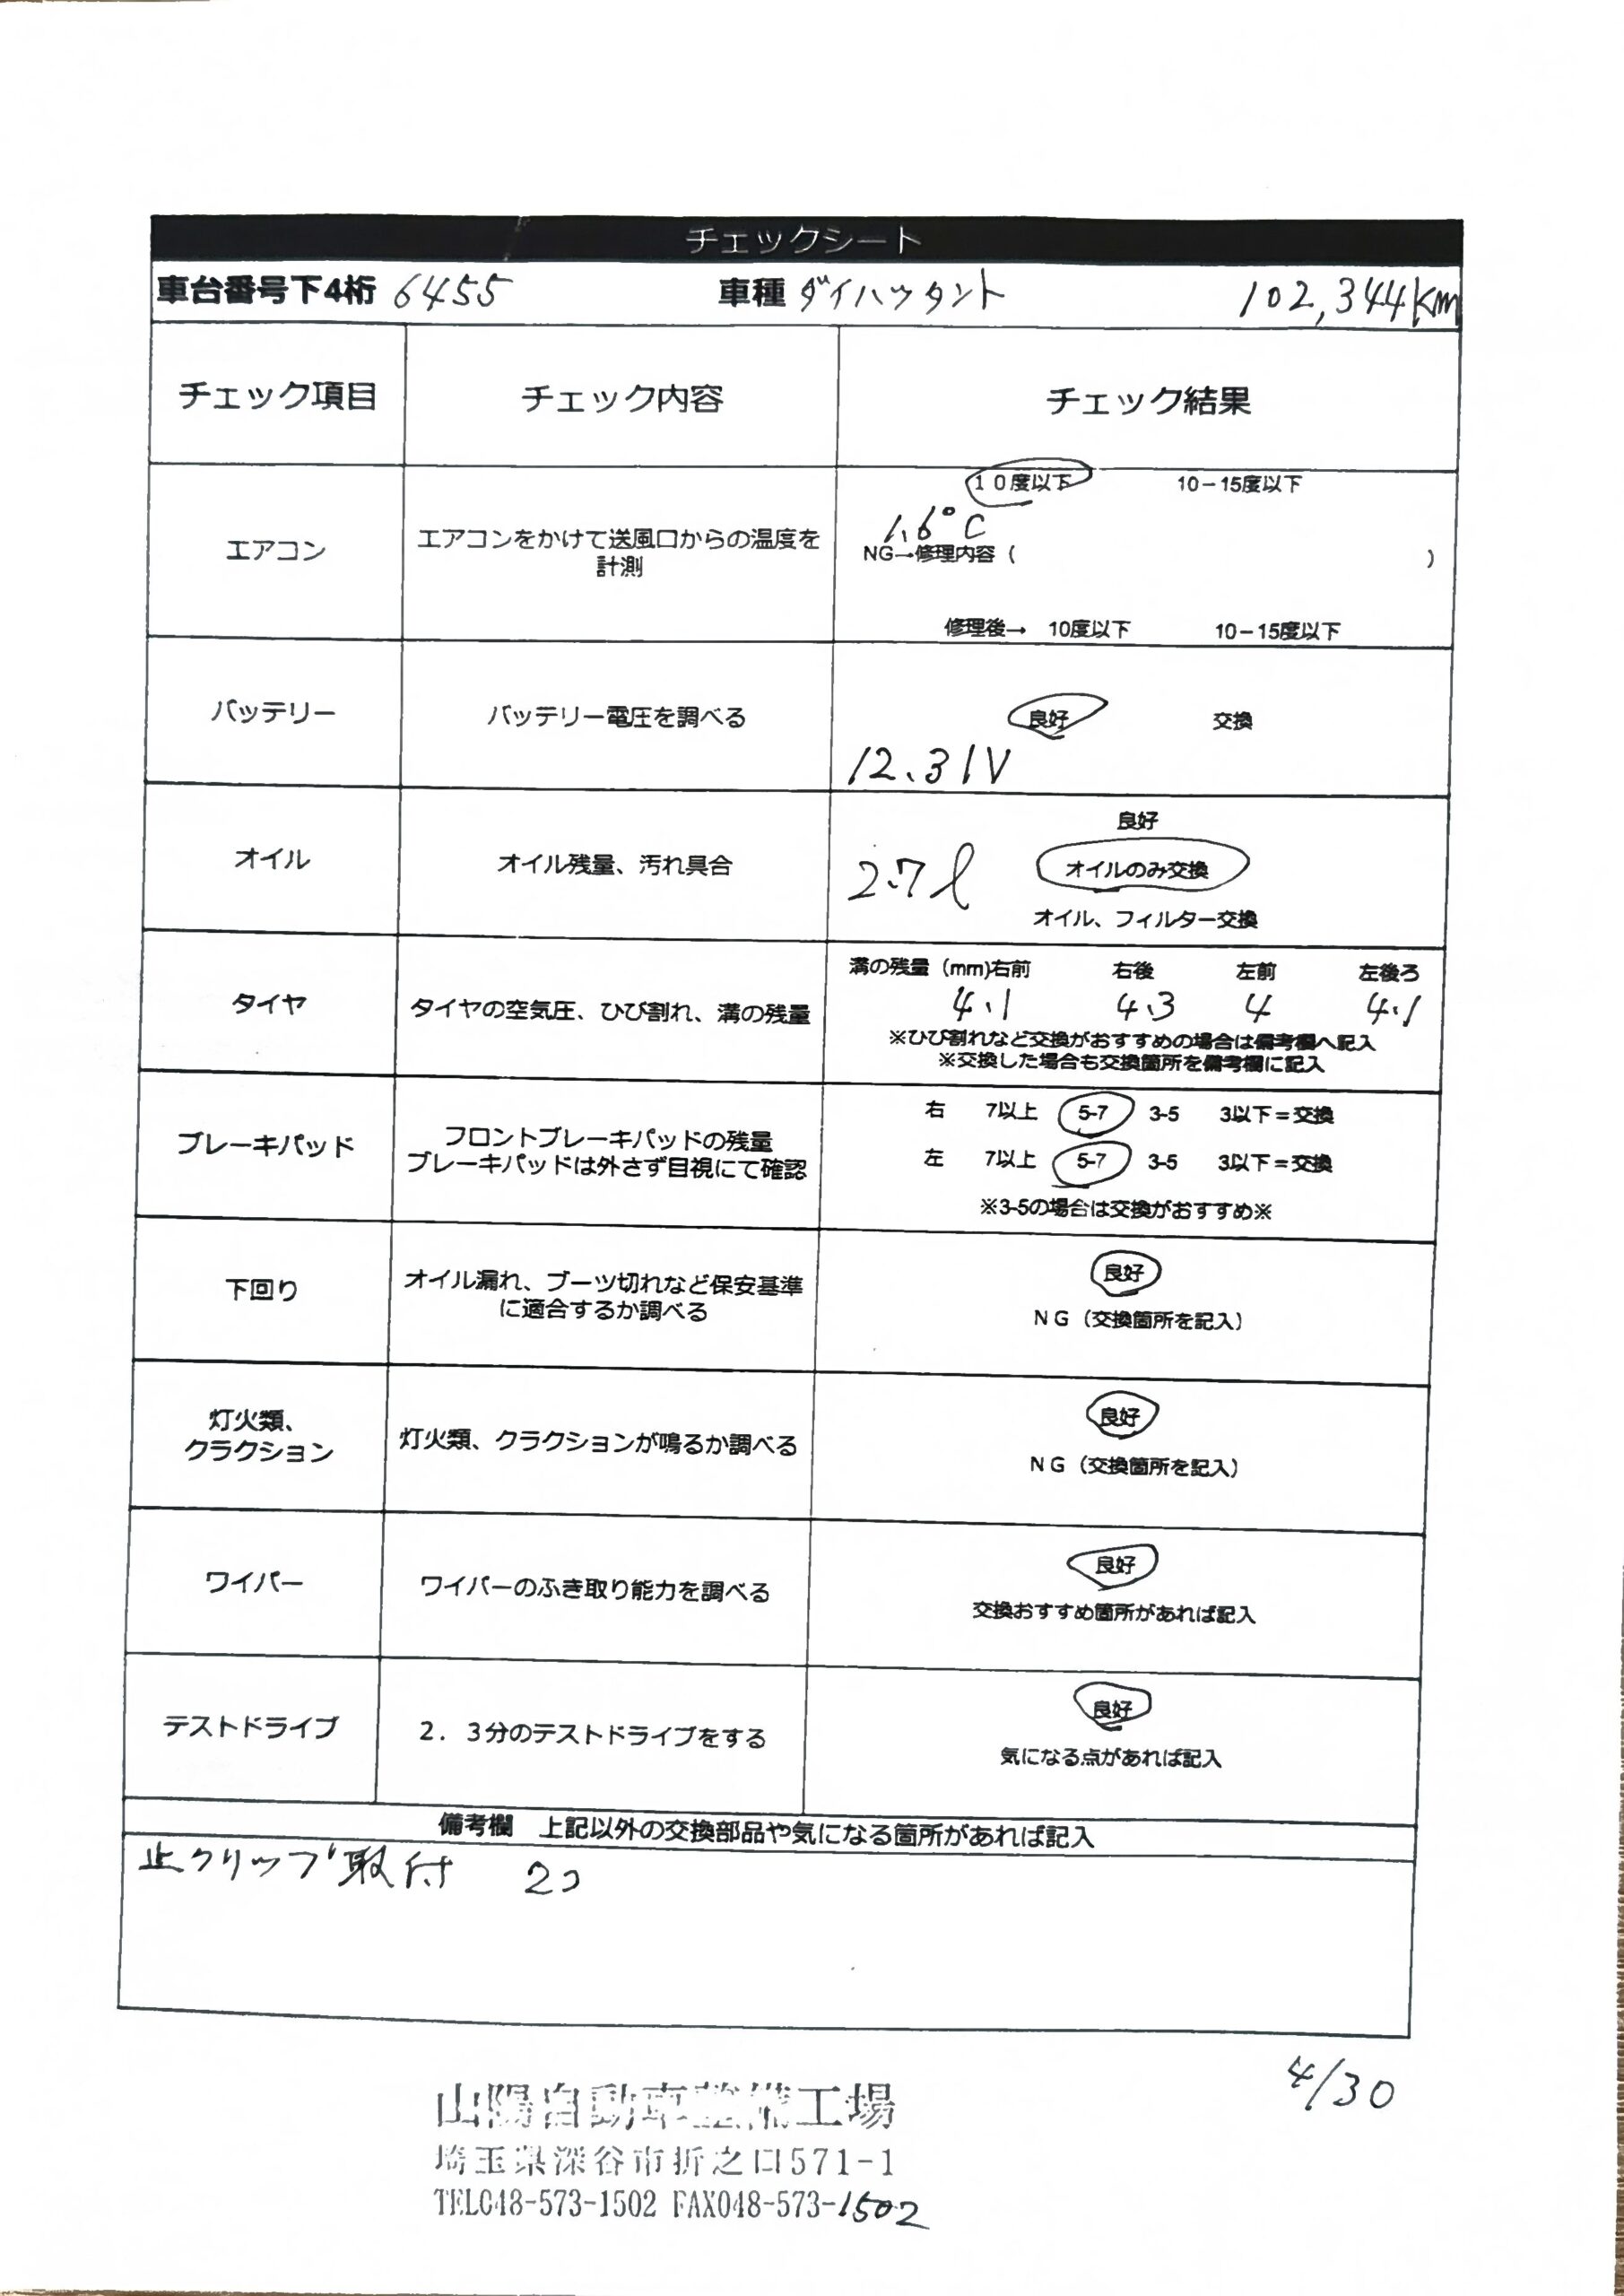 チェックシート
車台番号下4桁 6455 車種 ダイハツタント 102,344km
チェック項目 チェック内容 チェック結果
エアコン エアコンをかけて送風口からの温度を計測
10度以下 10-15度以下
1.6°C
NG→修理内容( )
修理後→ 10度以下 10-15度以下
バッテリー バッテリー電圧を調べる 良好 交換
12.31V
オイル オイル残量、汚れ具合
良好
2.7ℓ オイルのみ交換
オイル、フィルター交換
タイヤ タイヤの空気圧、ひび割れ、溝の残量
溝の残量(mm)右前 右後 左前 左後ろ
4.1 4.3 4 4.1
※ひび割れなど交換がおすすめの場合は備考欄へ記入
※交換した場合も交換箇所を備考欄に記入
ブレーキパッド フロントブレーキパッドの残量
ブレーキパッドは外さず目視にて確認
右 7以上 5-7 3-5 3以下=交換
左 7以上 5-7 3-5 3以下=交換
※3-5の場合は交換がおすすめ※
下回り オイル漏れ、ブーツ切れなど保安基準
に適合するか調べる
良好
NG(交換箇所を記入)
灯火類、
クラクション 灯火類、クラクションが鳴るか調べる
良好
NG(交換箇所を記入)
ワイパー ワイパーのふき取り能力を調べる
良好
交換おすすめ箇所があれば記入
テストドライブ 2.3分のテストドライブをする
良好
気になる点があれば記入
備考欄 上記以外の交換部品や気になる箇所があれば記入
止クリップ取付 2コ
4/30
山陽自動車整備工場
埼玉県深谷市折之口571-1
TEL048-573-1502 FAX048-573-1502